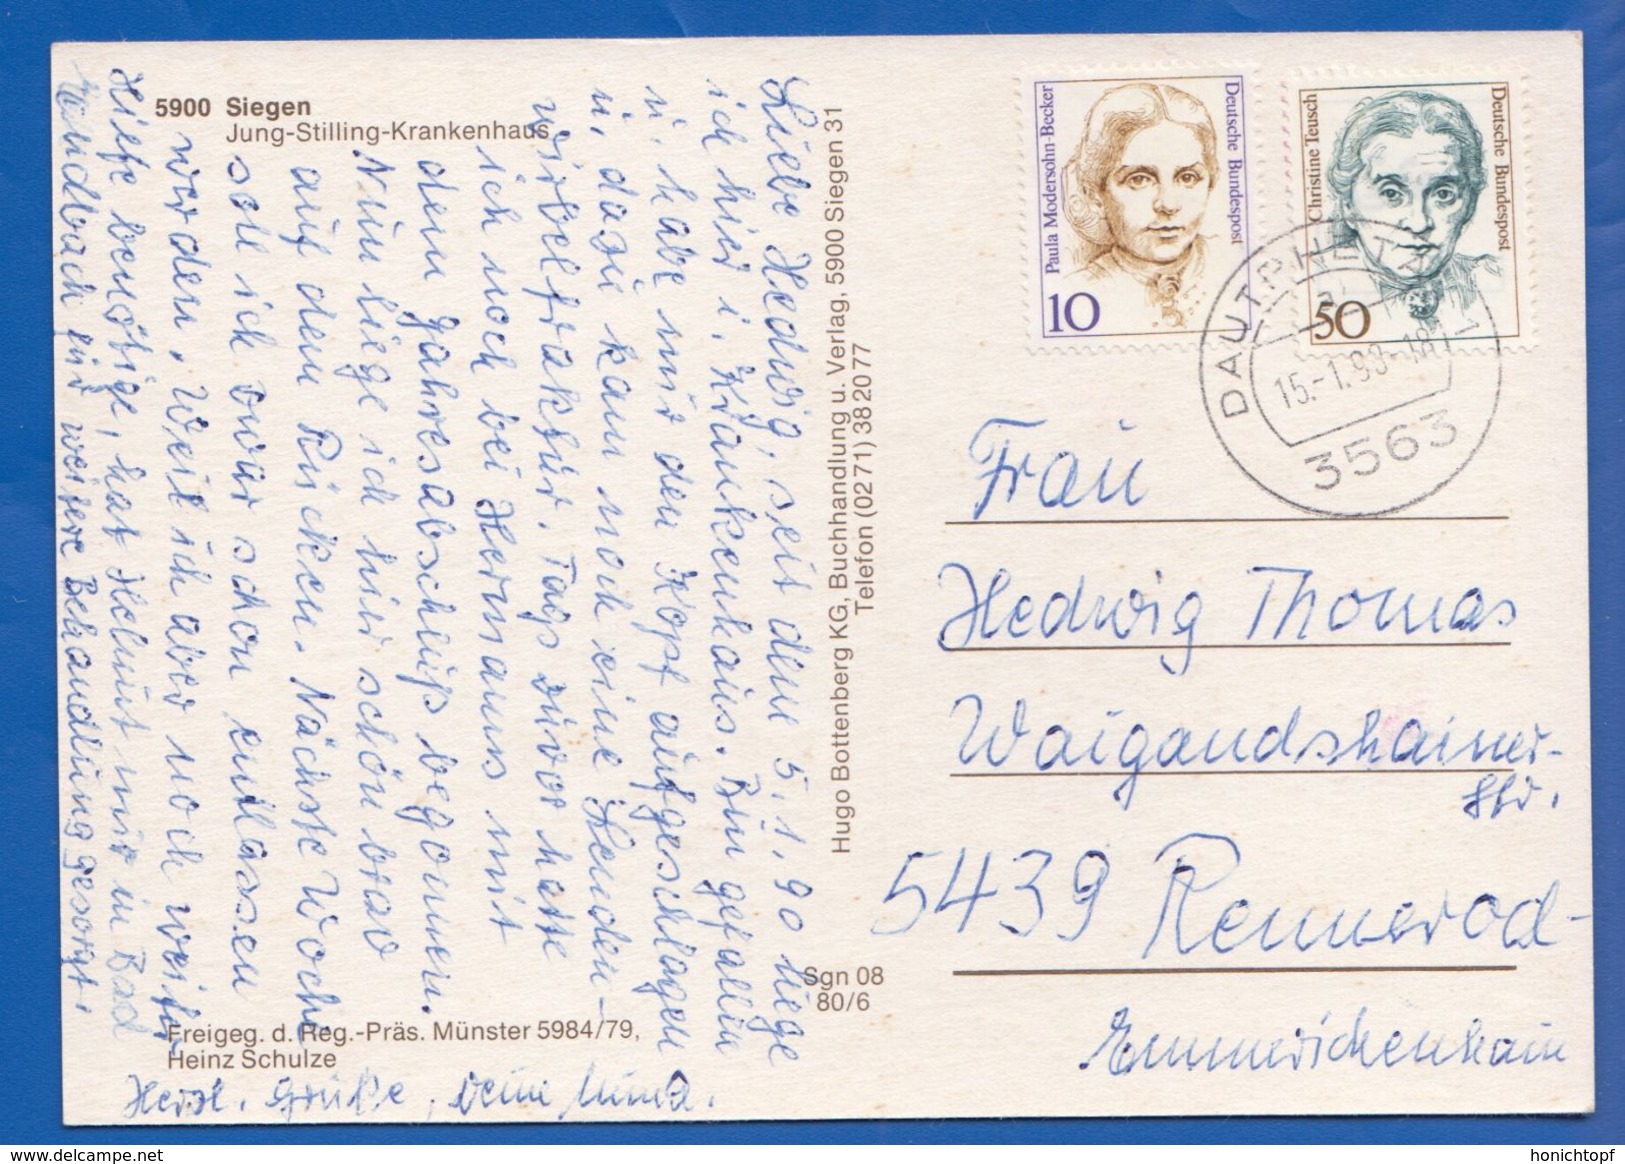 5900 Siegen
Jung-Stilling-Krankenhaus
Liebe Hedwig, seit dem 5.1.90 liege
ich hier i. Krankenhaus. Bin gefallen
u. habe mir den Kopf aufgeschlagen
u. dazu kam noch eine Lenden-
wirbelfraktur. Tags zuvor hatte
ich noch bei Hermanns mit
dem Jahresabschluß begonnen.
Nun liege ich hier schön brav
auf dem Rücken. Nächste Woche
soll ich zwar schon entlassen
werden. Weil ich aber noch weiter
Hilfe benötige, hat Helmut mir in Bad
Endbach für weitere Behandlung gesorgt.
Herzl. Grüße, Deine
Freigeg. d. Reg.-Präs. Münster 5984/79,
Heinz Schulze
Hugo Bottenberg KG, Buchhandlung u. Verlag, 5900 Siegen 31
Telefon (0271) 382077
Sgn 08
80/6
Paula Modersohn-Becker
Deutsche Bundespost
10
Christine Teusch
Deutsche Bundespost
50
DAUTPHETAL 1
3563
Frau
Hedwig Thomas
Waigandshainer-
Str.
5439 Rennerod-
Emmerichenhain
honichtopf
delcampe.net